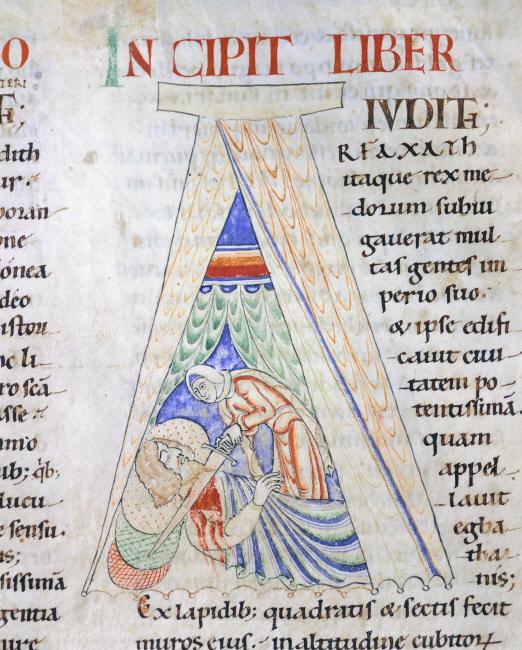 RO
TERI
dith
ur
poran
one
onea
deo
istori
nc li
ro scā
asse
mo
ub; q̄b;
lucu
e sensu.
us;
sissimā
gentia
INCIPIT LIBER
IVDIT;
RFAXATH
itaque rex me
dorum subiu
gauerat mul
tas gentes im
perio suo.
& ipse edifi
cauit ciui
tatem po
tentissimā.
quam
appel
lauit
egba
tha
nis;
Ex lapidib; quadratis & sectis fecit
muros eius. in altitudine cubitoꝝ